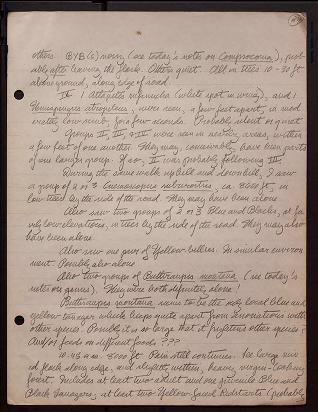 others BYB(s) norm (see today's note on Compsocoma), prob-
ably after leaving the flock. Others quiet. All in trees 10-30 ft
above ground, along edge of road.
IV 1 Atlapetes rufinucha (white spot in wing), and 1
Hemispingus atropileus, were seen, a few feet apart, in mod
erately low scrub, for a few seconds. Probably silent or quiet
Groups II, III, & IV were seen in nearby areas, within
a few feet of one another. They may, conceivably, have been parts
of one larger group. If so, II was probably following III.
During the same walk up hill and downhill, I saw
a group of 2 or 3 Anisognathus, ca. 8000 ft, in
low trees by the side of the road. They may have been alone
Also saw two groups of 2 or 3 Blue and Blacks, at fa
irly low elevations, in trees by the side of the road. They may also
have been alone.
Also saw one pair of Yellow-bellies. In similar environ
ment. Possibly also alone
Also two groups of Buthraupis montana (see today's
note on genus). They were both definitely alone!
Buthraupis montana seems to be the only local blue and
yellow tanager which keeps quite apart from associations with
other species. Possibly it is so large that it frightens other species?
And/or feeds on different foods???
10:45 a.m. 8000 ft. Rain still continues. See large mix
ed flock along edge, and slightly within, heavy, virgin-looking
forest. Includes at least two adult and one juvenile Blue and
Black Tanagers; at least two Yellow-faced Redstarts (probably